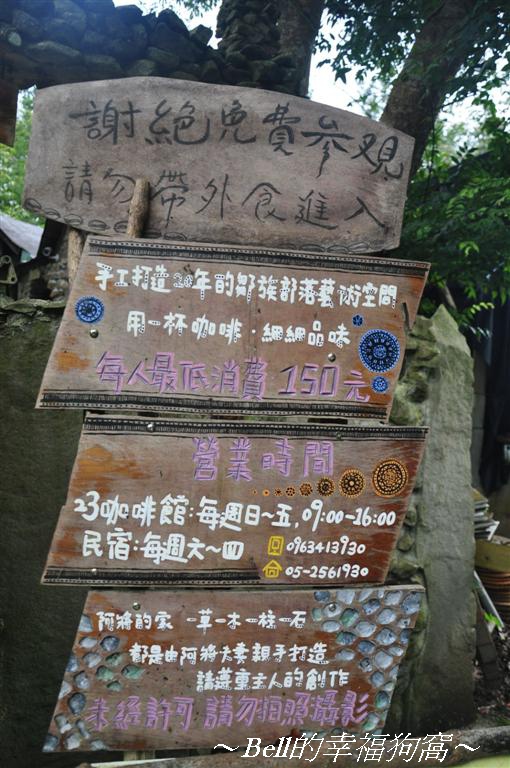 謝絕免費參觀
請勿帶外食進入
手工打造20年的鄒族部落藝術空間
用一杯咖啡·細細品味
每人最低消費 150元
營業時間
23咖啡館:每週日~五,09:00-16:00
民宿:每週六~四
0963413930
05-2561930
阿將的家 一草一木一柱一石
都是由阿將夫妻親手打造
請尊重主人的創作
未經許可 請勿拍照攝影
～Bell的幸福狗窩～